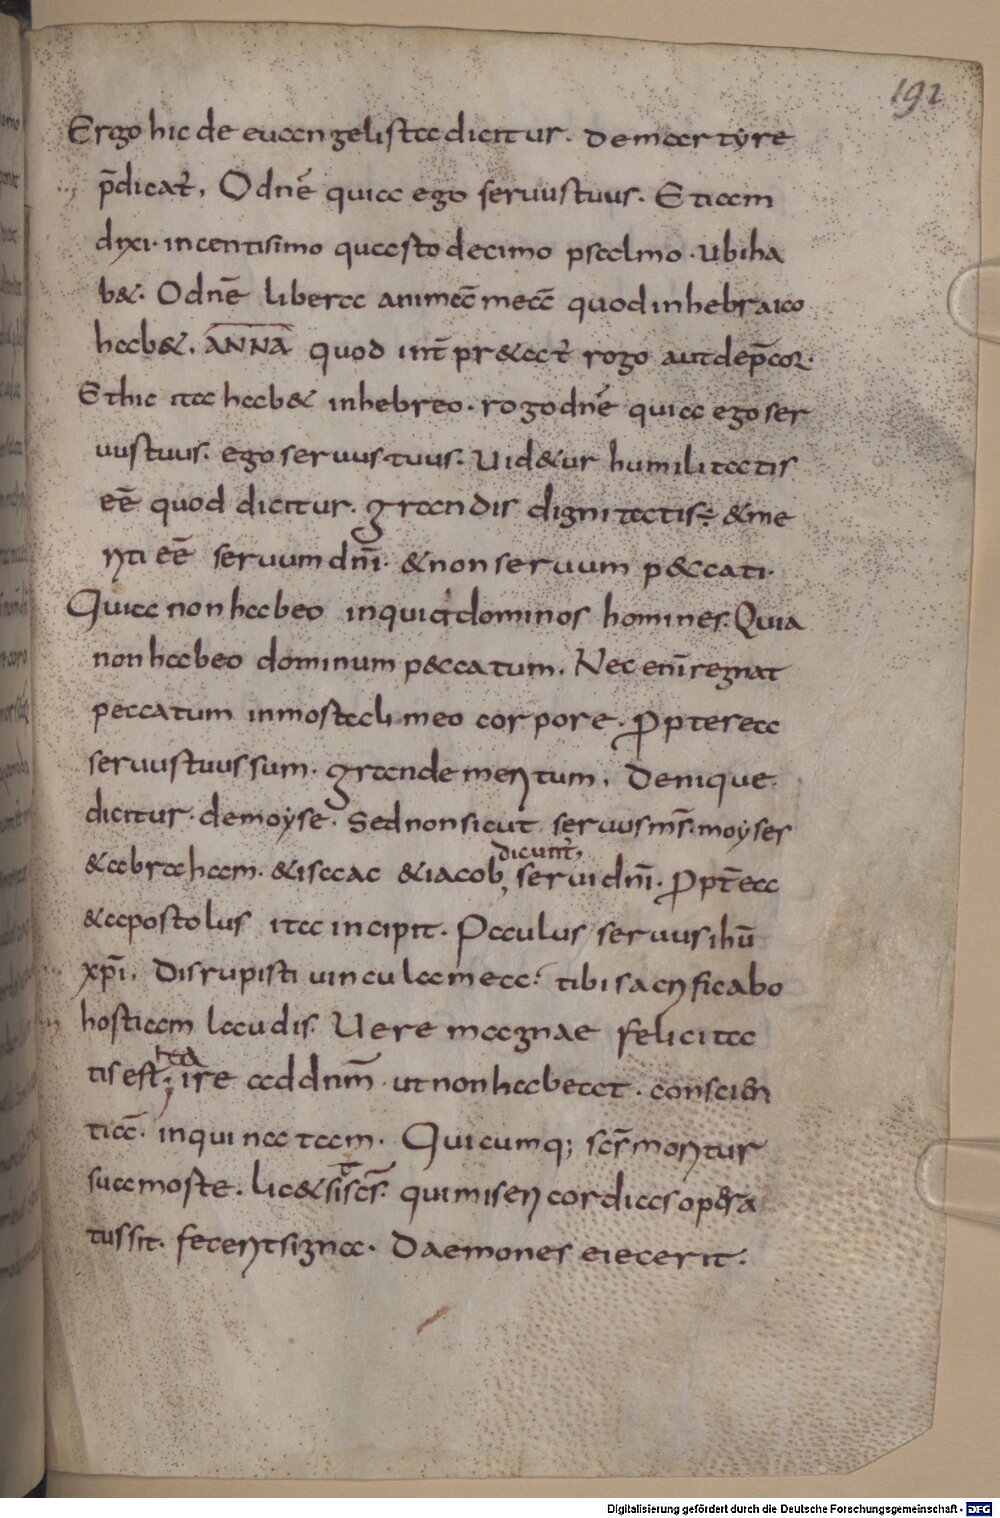 192
Ergo hic de euangelista dicitur. de martyre
p̄dicat᷑, O dn̄e quia ego seruus tuus. Etiam
dixi. in centisimo quarto decimo psalmo. ubi ha
b&. O dn̄e libera animā meā quod in hebraico
hab&. ANNA quod int̄pr&at᷑ rogo aut dep̄cor.
Et hic ita hab& in hebreo. rogo dn̄e quia ego ser
uus tuus. ego seruus tuus. Uid&ur humilitatis
eē quod dicitur. grandis dignitatis: & me
riti eē seruum dn̄i. & non seruum peccati.
Quia non habeo inquid dominos homines. Quia
non habeo dominum peccatum. Nec eni᷑ regnat
peccatum in mortali meo corpore. Propterea
seruus tuus sum. grande meritum, Denique
dicitur. de moyse. Sed non sicut seruus m̄s. moyses
dicunt᷑,
& abraham. & isaac & iacob, serui dn̄i. Propt̄ea
& apostolus ita incipit. Paulus seruus ihū
xp̄i. Disrupisti uincula mea: tibi sacrificabo
hostiam laudis. Uere magnae felicita
ita
tis est; ire ad dn̄m. ut non habeat. conscien
tiā. inquinatam. Quicumq; scs̄ moritur
sua morte. lic& sit scs̄. qui misericordias opera
tus sit. fecerit signa. Daemones eiecerit.
Digitalisierung gefördert durch die Deutsche Forschungsgemeinschaft - DFG